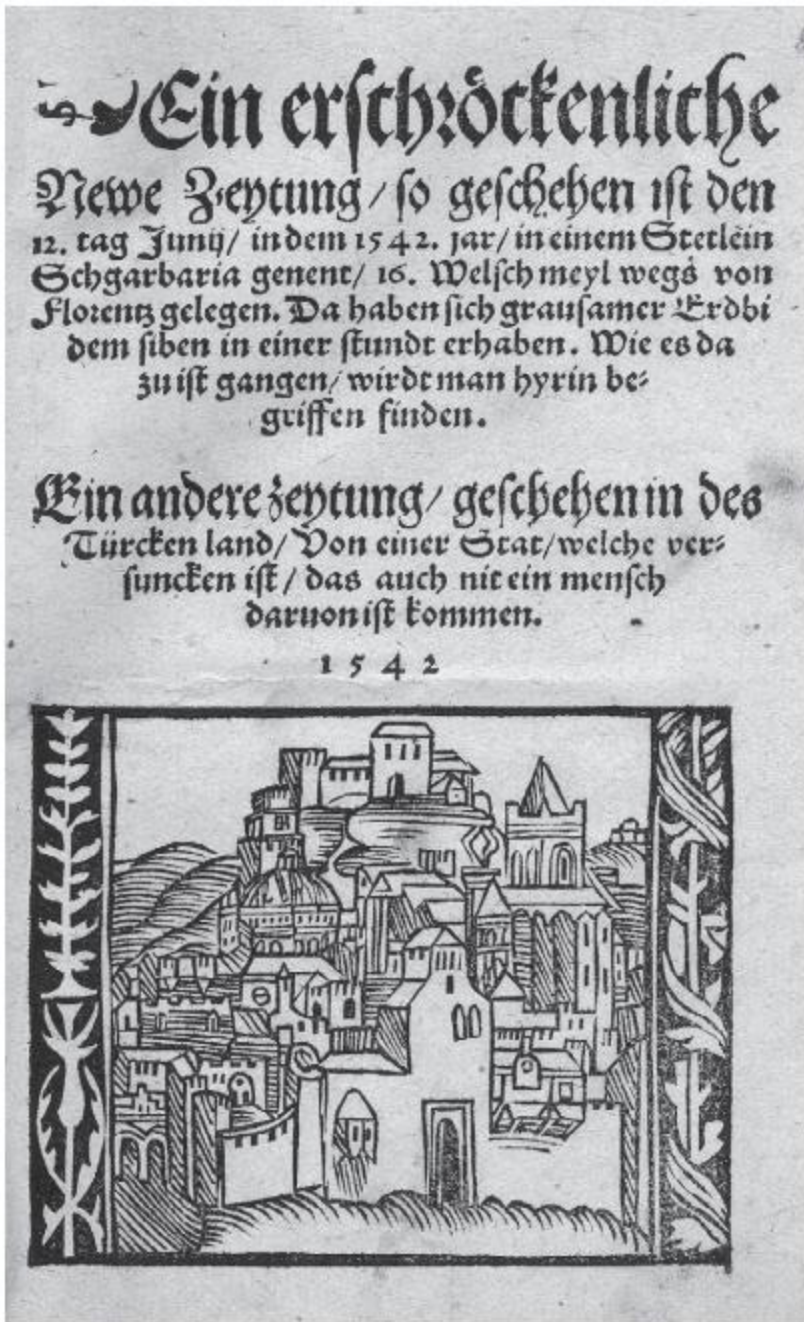 Ein erschröckenliche
Newe Zeytung / so geschehen ist den
12. tag Junij / in dem 1542. jar / in einem Stetlein
Schgarbaria genent / 16. Welsch meyl wegs von
Florentz gelegen. Da haben sich grausamer Erdbi
dem siben in einer stundt erhaben. Wie es da
zu ist gangen / wirdt man hyrin be-
griffen finden.
Ein andere zeytung / geschehen in des
Türcken land / Von einer Stat / welche ver-
suncken ist / das auch nit ein mensch
daruon ist kommen.
1 5 4 2